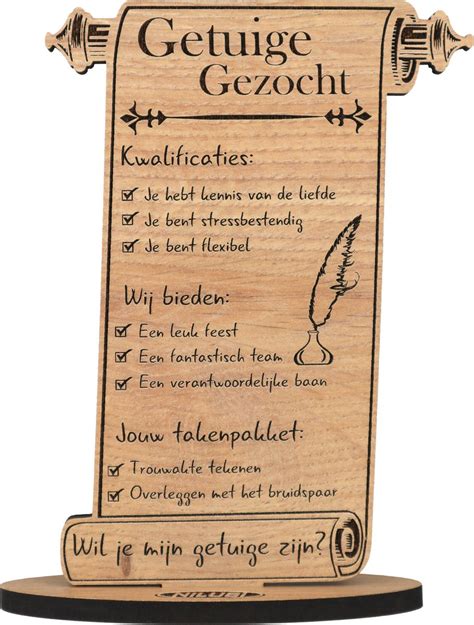 Getuige
Gezocht
Kwalificaties:
Je hebt kennis van de liefde
Je bent stressbestendig
Je bent flexibel
Wij bieden:
Een leuk feest
Een fantastisch team
Een verantwoordelijke baan
Jouw takenpakket:
Trouwakte tekenen
Overleggen met het bruidspaar
Wil je mijn getuige zijn?